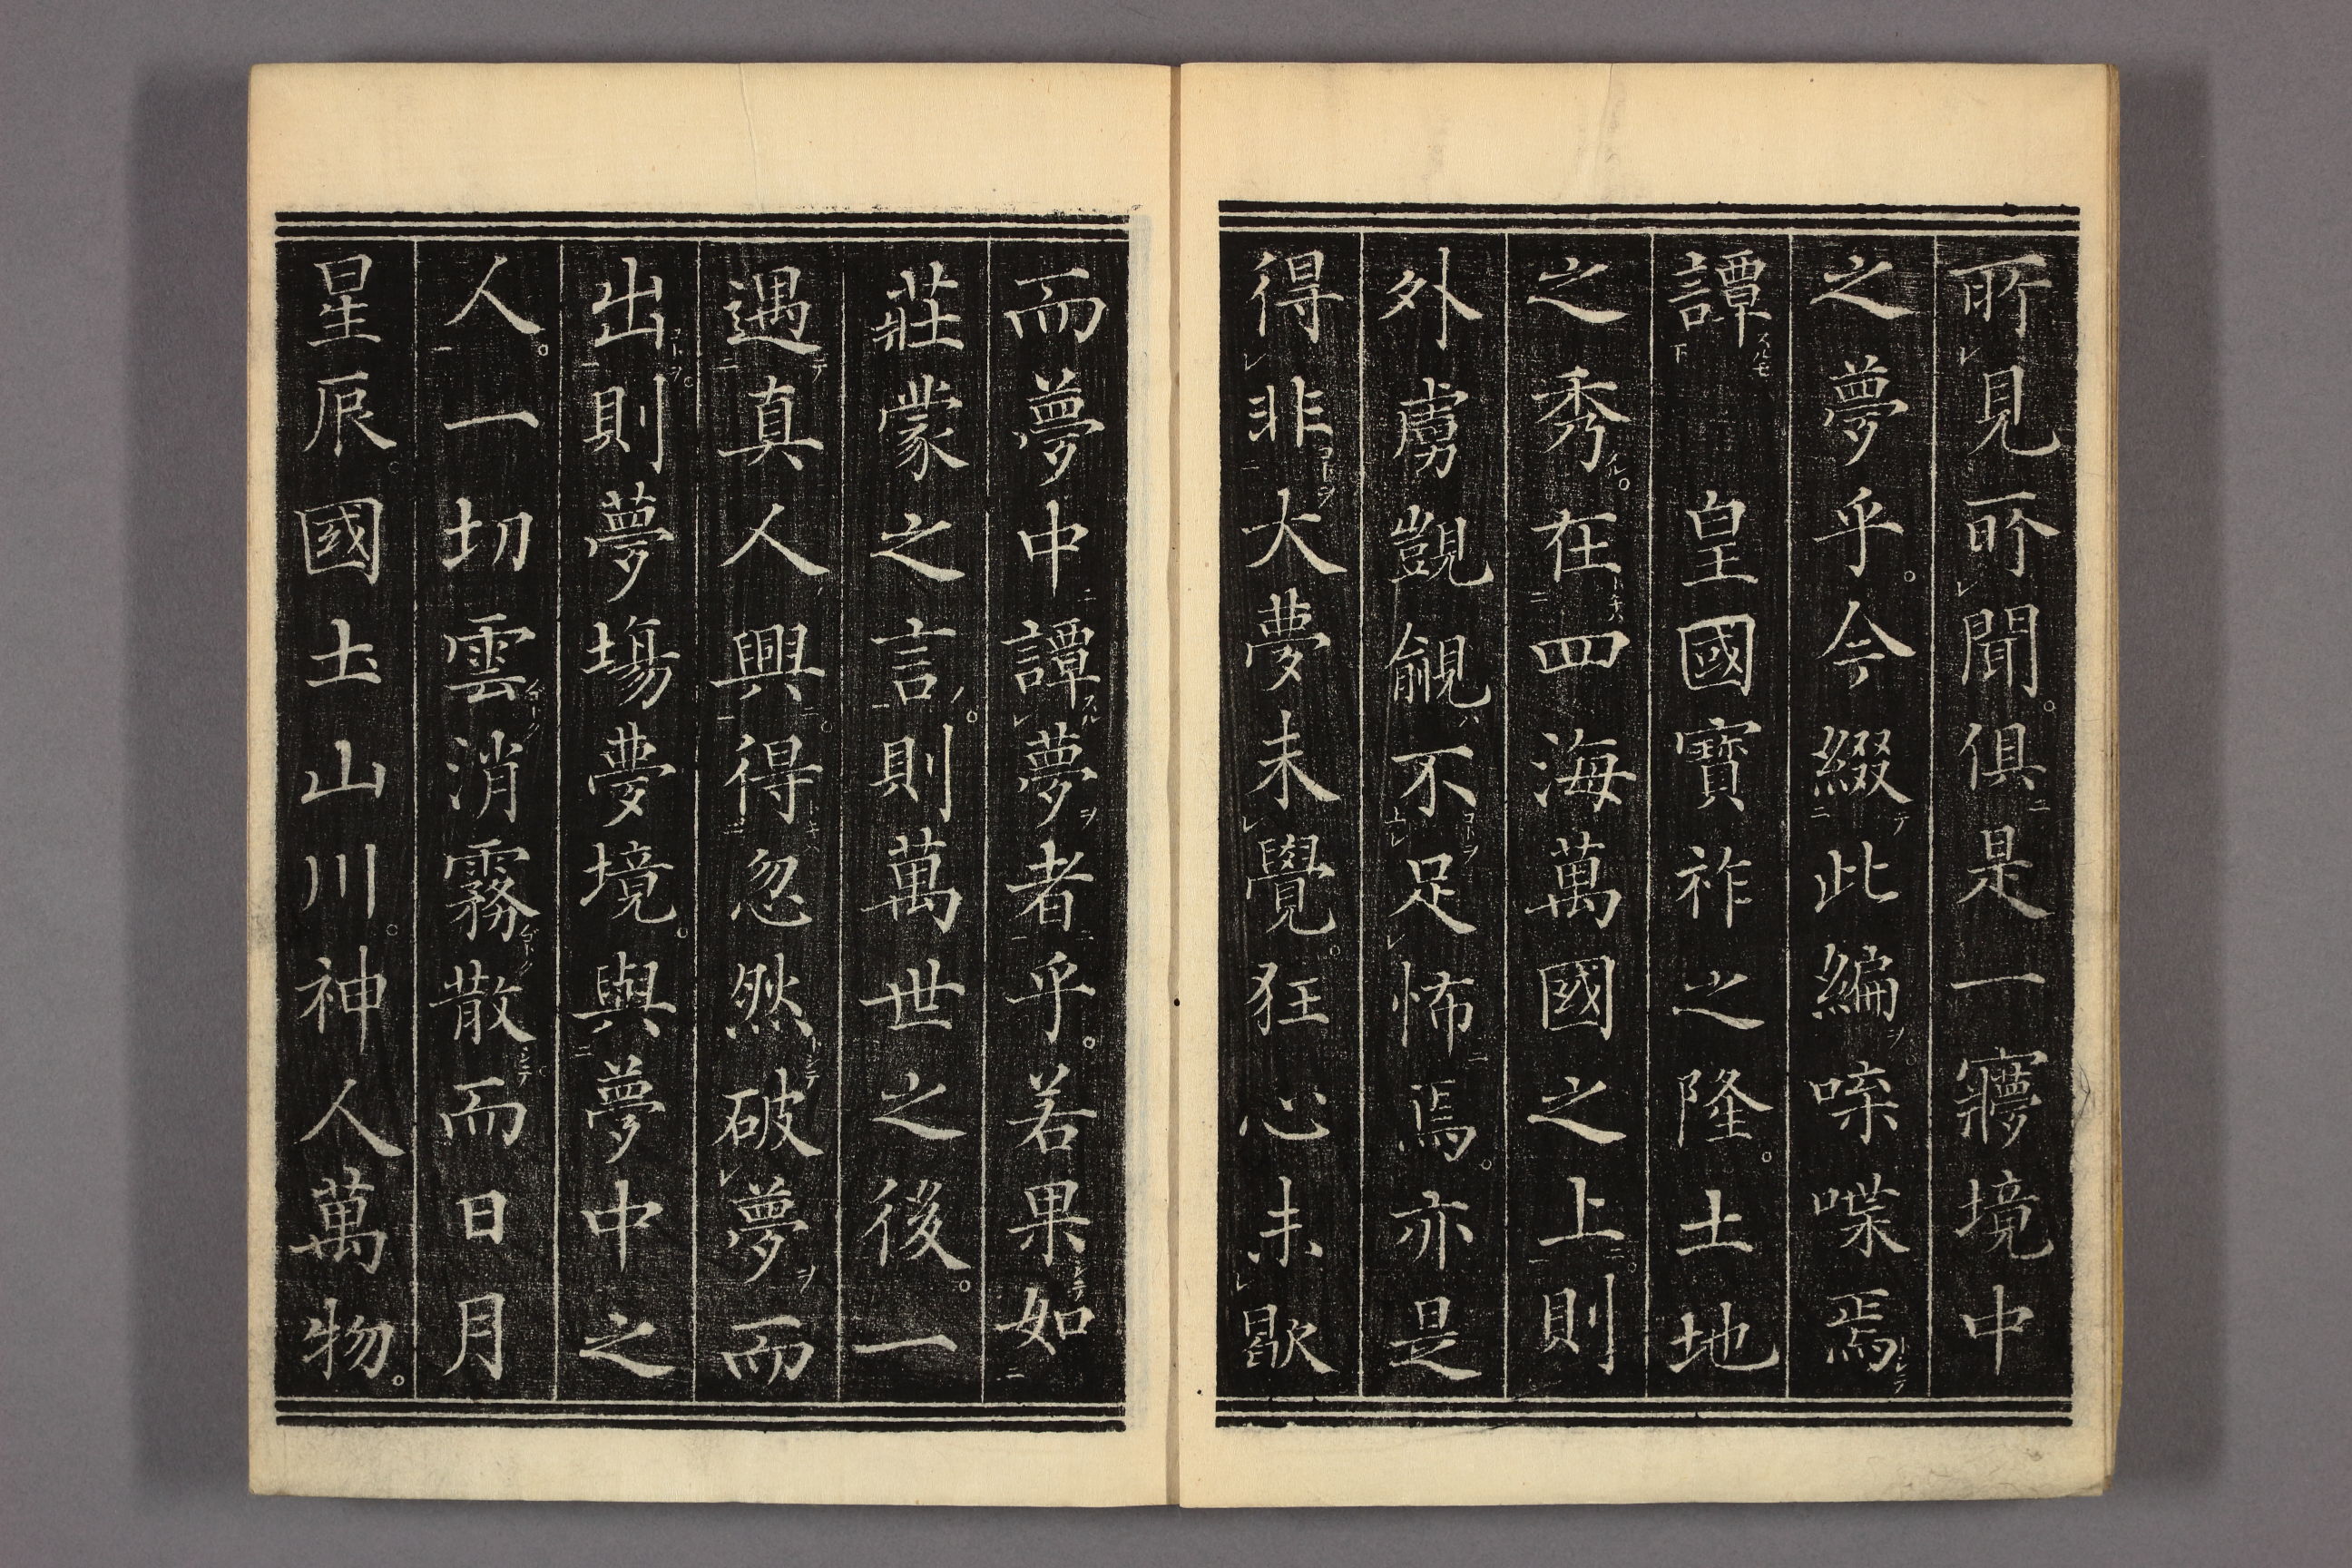 所見所聞。俱是一㝱境中
之夢乎。今綴此編。喋喋焉
譚　皇國寶祚之隆。土地
之秀。在四海萬國之上。則
外虜覬覦不足怖焉。亦是
得非大夢未覺。狂心未歇
而夢中譚夢者乎。若果如
莊蒙之言。則萬世之後。一
遇真人興。得忽然破夢而
出。則夢場夢境。與夢中之
人。一切雲消霧散。而日月
星辰。國土山川。神人萬物。